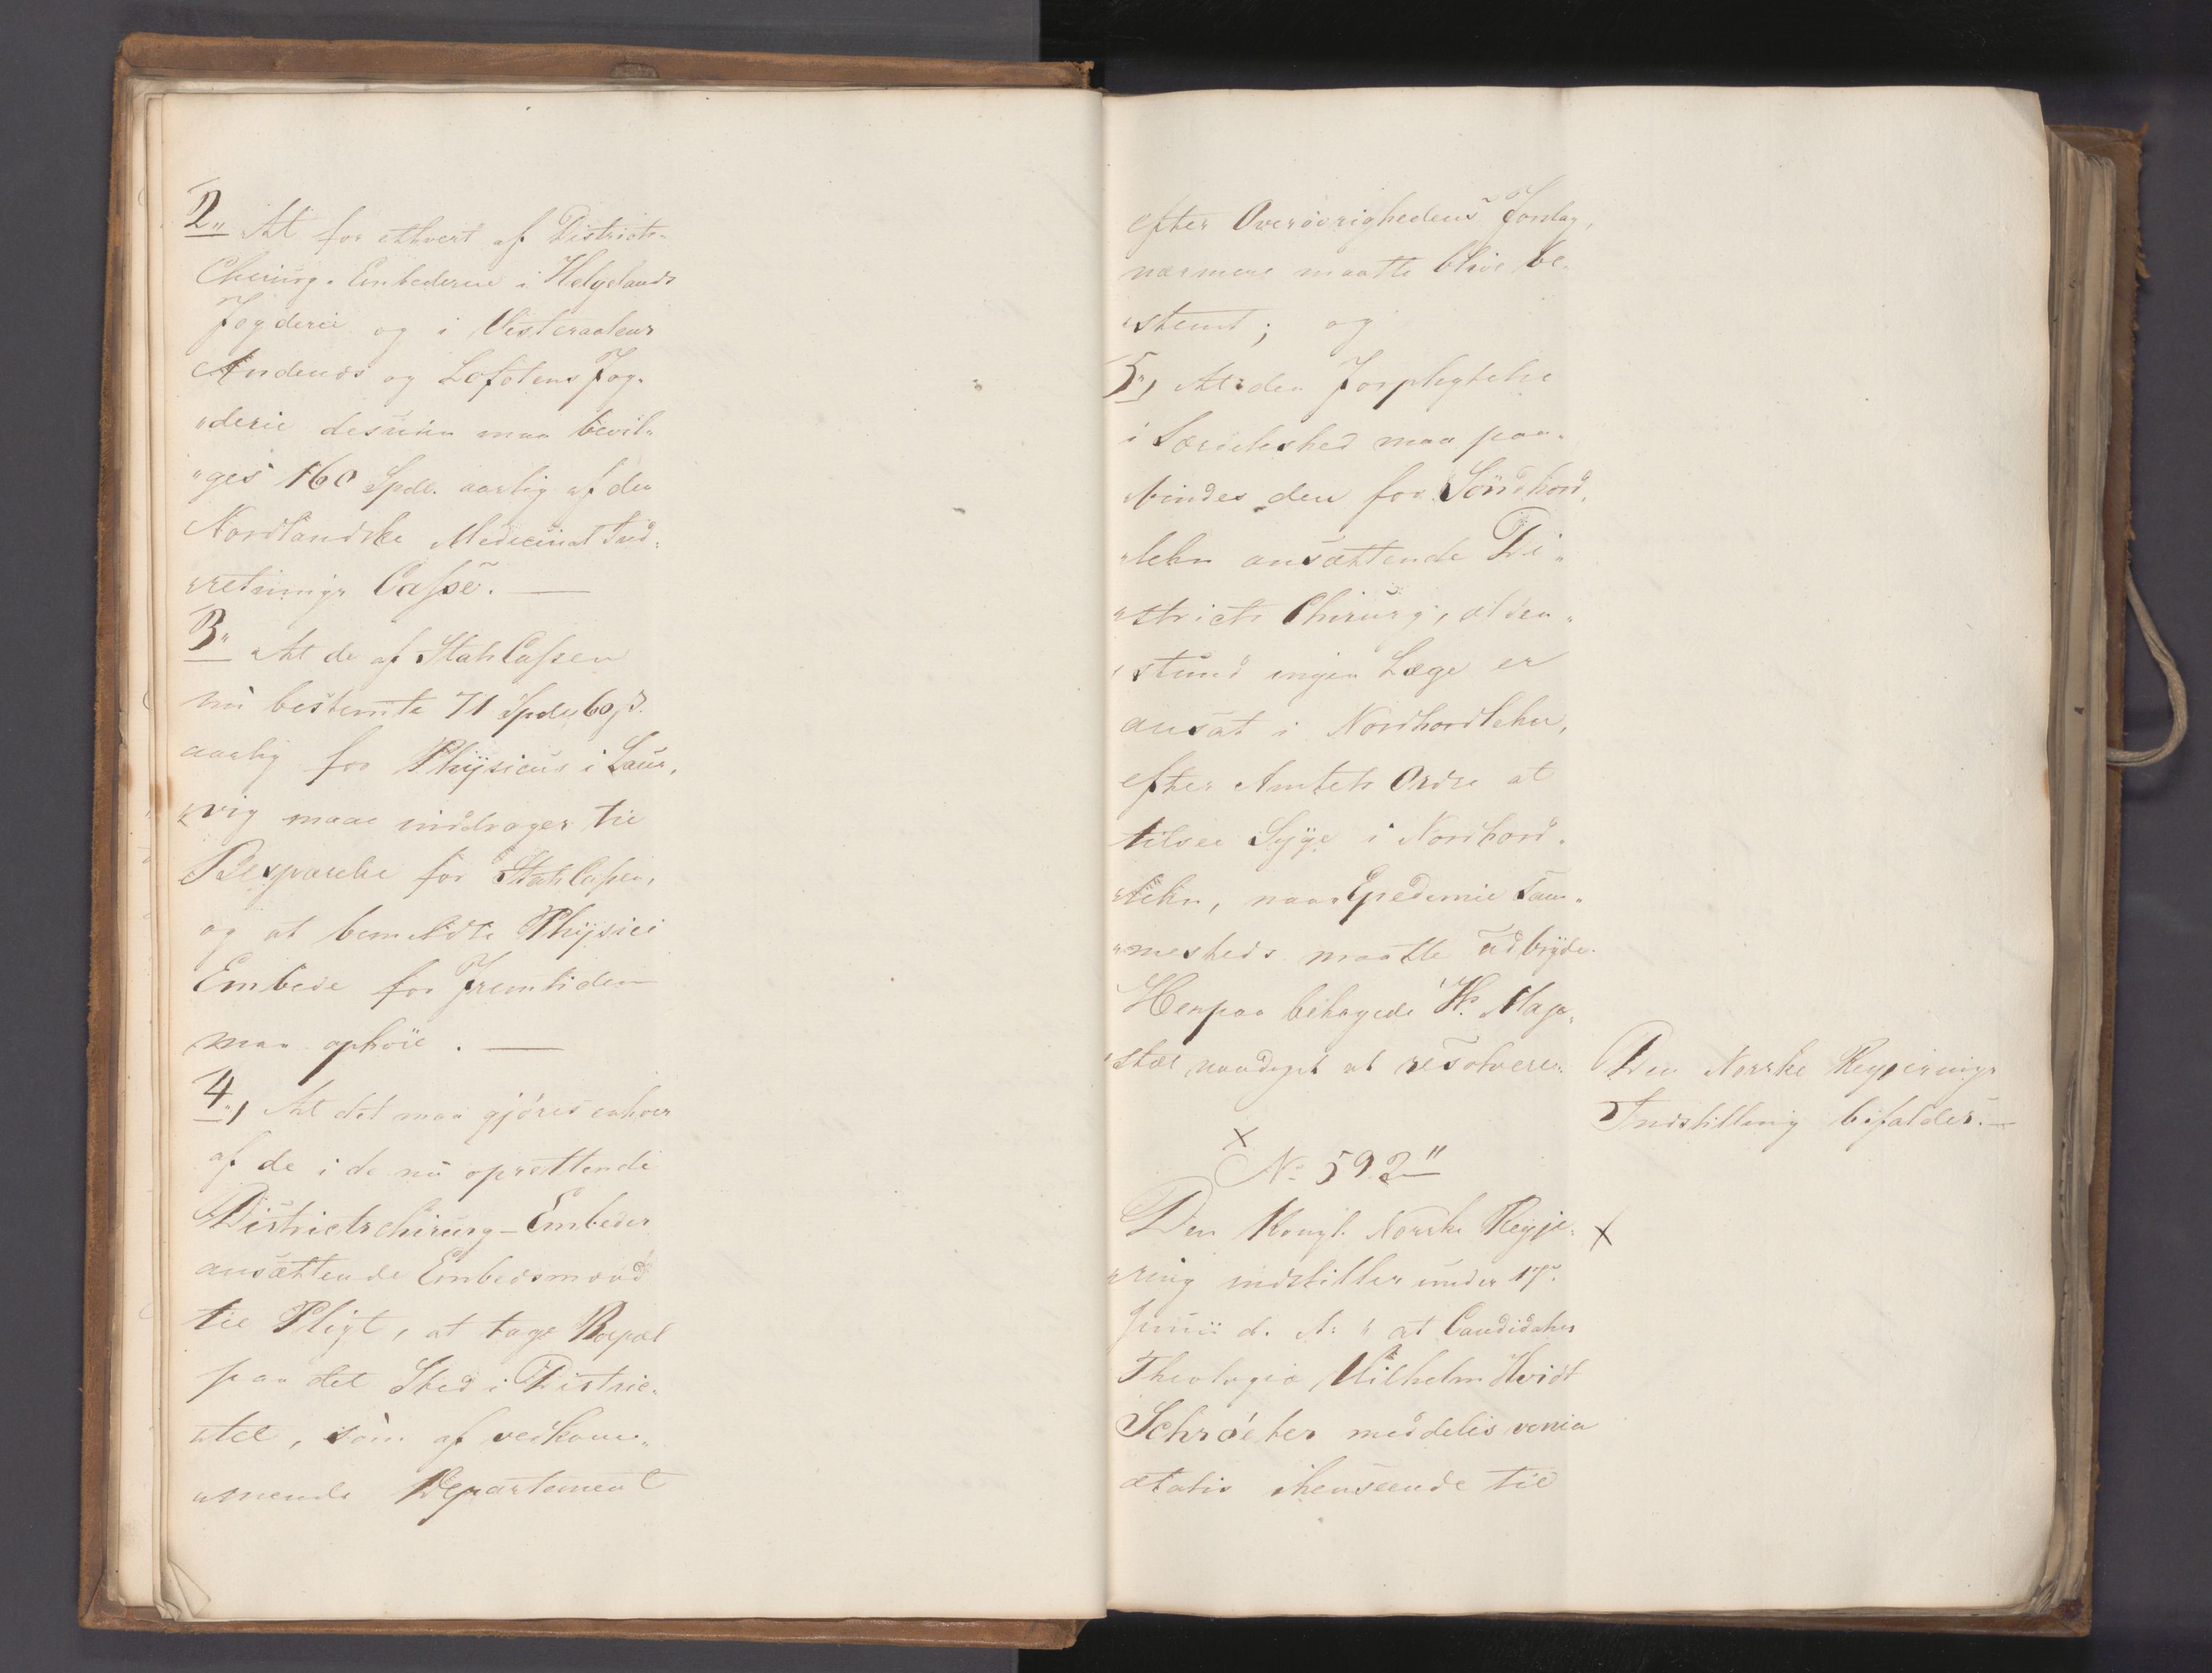 2" At for ethvert af Districts-
Chirurg-Embederne i Helgelands
Fogderie og i Vesteraalens
Andenæs og Lofotens Fog-
"derie desuden maa bevil-
"ges 160 Spdlr. aarlig af den
Nordlandske Medicinal Ind-
"retnings Casse. —
3" At de af Stats Cassen
nu bestemte 71 Spdlr 60 s.
aarlig for Physicus i Laur-
"vig maae inddrages til
Besparelse for Stats Cassen,
og at bemeldte Physici
Embede for Fremtiden
maa ophöre. —
4") At det maa gjöres enhver
af de i de nu oprettende
Districtschirurg-Embeder
ansættende Embedsmænd
til Pligt, at tage Boepæl
paa det Sted i Distric-
"tet, som af vedkom-
"mende Departement
efter Overövrighedens Forslag,
nærmere maatte blive be-
"stemt; og
5") At den Forpligtelse
i Særdeleshed maa paa-
"bindes den for Söndhord-
"lehn ansættende Di-
"stricts Chirurg, at den-
"stund ingen Læge er
ansat i Nordhordlehn,
efter Amtets Ordre at
tilsee Syge i Nordhord-
"lehn, naar Epedemie sam-
"mesteds maatte udbryde.
Herpaa behagede H. Maje-
"stæt naadigst at resolvere:
Den Norske Regjerings
Indstilling bifaldes. —
x
No 592"
Den Kongl. Norske Regje- x
"ring indstiller under 17de
Junii d. A: " at Candidatus
Theologiæ Vilhelm Hvidt
Schröeter meddeles venia
ætatis ihenseende til